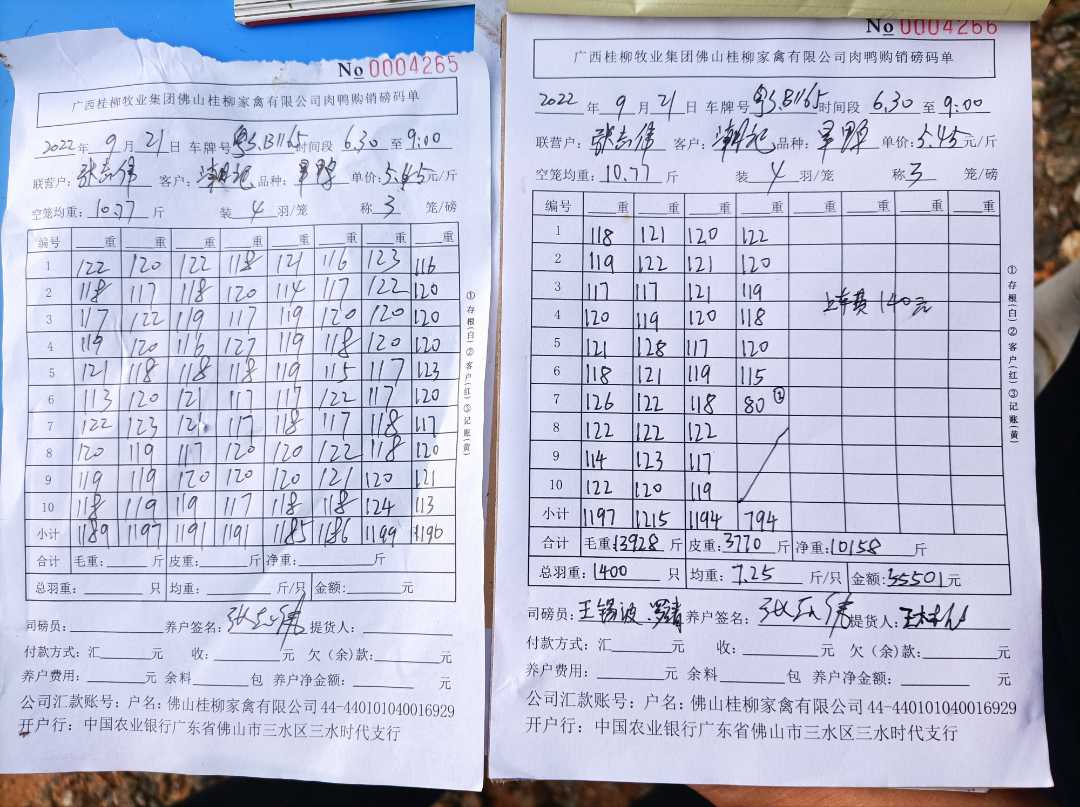 No 0004265
广西桂柳牧业集团佛山桂柳家禽有限公司肉鸭购销磅码单
2022 年 9 月 21 日 车牌号 粤S.B1165 时间段 6.30 至 9:00
联营户: 张志伟 客户: 潮记 品种: 单价: 5.45 元/斤
空笼均重: 10.77 斤 装 4 羽/笼 称 3 笼/磅
编号 重 重 重 重 重 重 重 重
1 122 120 122 118 121 116 123 116
2 118 117 118 120 114 117 122 120
3 117 122 119 117 119 120 120 120
4 119 120 116 127 119 118 120 120
5 121 118 118 118 119 115 117 123
6 113 120 121 117 117 122 117 120
7 122 123 121 117 118 117 118 117
8 120 119 117 120 120 122 118 120
9 119 119 120 120 120 121 120 121
10 118 119 119 117 118 118 124 113
小计 1189 1197 1191 1191 1185 1186 1199 1190
合计 毛重: 斤 皮重: 斤 净重: 斤
总羽重: 只 均重: 斤/只 金额: 元
司磅员: 养户签名: 提货人:
付款方式: 汇 元 收: 元 欠(余)款: 元
养户费用: 元 余料 包 养户净金额: 元
公司汇款账号: 户名: 佛山桂柳家禽有限公司 44-440101040016929
开户行: 中国农业银行广东省佛山市三水区三水时代支行
①存根(白)②客户(红)③记账(黄)
No 0004266
广西桂柳牧业集团佛山桂柳家禽有限公司肉鸭购销磅码单
2022 年 9 月 21 日 车牌号 粤S.B1165 时间段 6.30 至 9:00
联营户: 张志伟 客户: 潮记 品种: 单价: 5.45 元/斤
空笼均重: 10.77 斤 装 4 羽/笼 称 3 笼/磅
编号 重 重 重 重 重 重 重 重
1 118 121 120 122
2 119 122 121 120
3 117 117 121 119
4 120 119 120 118 上车费 140元
5 121 128 117 120
6 118 121 119 115
7 126 122 118 80 ②
8 122 122 122
9 114 123 117
10 122 120 119
小计 1197 1215 1194 794
合计 毛重: 13928 斤 皮重: 3770 斤 净重: 10158 斤
总羽重: 1400 只 均重: 7.25 斤/只 金额: 55501 元
司磅员: 王锡波 养户签名: 提货人:
付款方式: 汇 元 收: 元 欠(余)款: 元
养户费用: 元 余料 包 养户净金额: 元
公司汇款账号: 户名: 佛山桂柳家禽有限公司 44-440101040016929
开户行: 中国农业银行广东省佛山市三水区三水时代支行
①存根(白)②客户(红)③记账(黄)